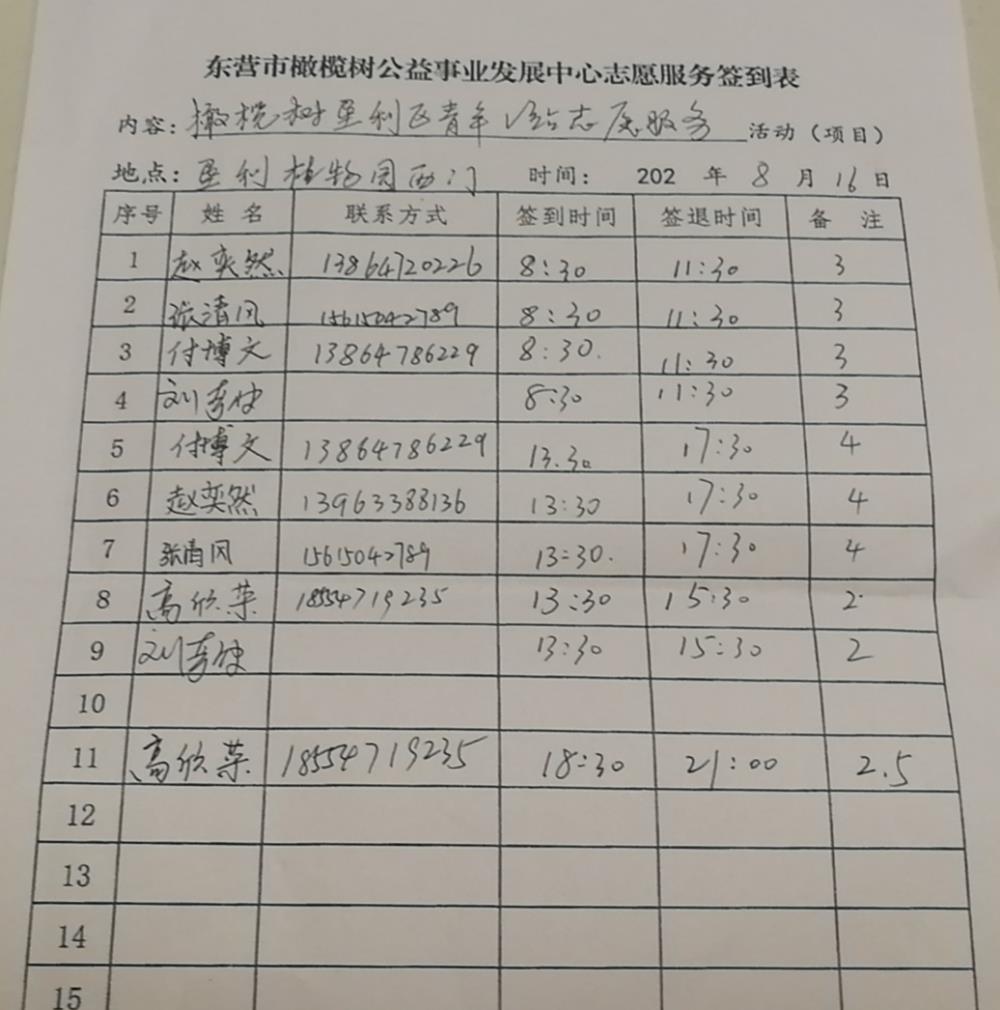 东营市橄榄树公益事业发展中心志愿服务签到表
内容：橄榄树垦利区青年V站志愿服务 活动（项目）
地点：垦利植物园西门 时间： 202 年 8 月 16 日
序号 姓名 联系方式 签到时间 签退时间 备 注
1 赵奕然 13864720226 8:30 11:30 3
2 张清风 15615042789 8:30 11:30 3
3 付博文 13864786229 8:30. 11:30 3
4 刘 8:30 11:30 3
5 付博文 13864786229 13.30 17:30 4
6 赵奕然 13963388136 13:30 17:30 4
7 张清风 15615042789 13:30. 17:30 4
8 高欣荣 18554719235 13:30 15:30 2
9 刘 13:30 15:30 2
10
11 高欣荣 18554719235 18:30 21:00 2.5
12
13
14
15